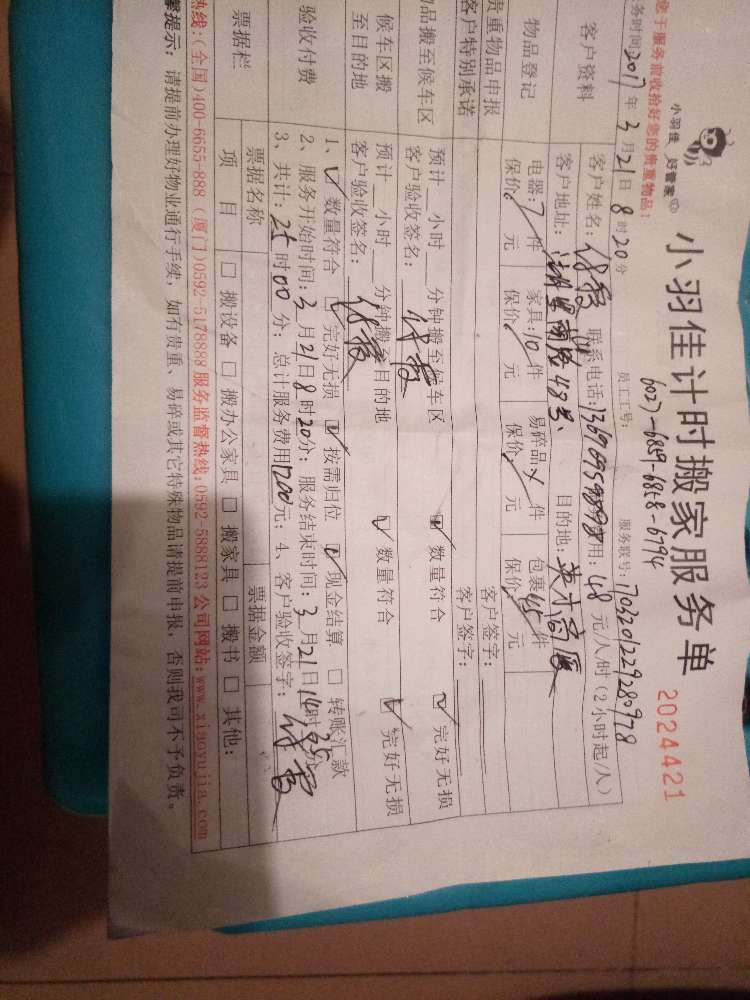 您于服务前收拾好您的贵重物品!
小羽佳 好管家
小羽佳计时搬家服务单
2024421
务时间:2017年3月21日8时20分
员工工号: 6027-6859-6858-6794
服务联号: 170320122928097８
客户资料
客户姓名:
联系电话:
用: 48 元/人/时 (2小时起/人)
客户地址: 湖里南路48号、
目的地:
物品登记
电器: 7 件
家具: 10 件
易碎品 件
包裹 45 件
保价 元
保价 元
保价 元
保价 元
贵重物品申报
客户签字:
客户特别承诺
客户签字:
品搬至候车区
预计 小时 分钟搬至候车区
数量符合
完好无损
客户验收签名:
候车区搬至目的地
预计 小时 分钟搬至目的地
数量符合
完好无损
客户验收签名:
验收付费
1、 数量符合 完好无损 按需归位 现金结算 □ 转账汇款
2、服务开始时间: 3月21日8时20分; 服务结束时间: 3月21日14时35分
3、共计: 25时00分; 总计服务费用1200元; 4、客户验收签字:
票据栏
票据名称
票据金额
项 目
□ 搬设备 □ 搬办公家具 □ 搬家具 □ 搬书 □ 其他:
热线:(全国)400-6655-888 (厦门)0592-5178888 服务监督热线:0592-5888123 公司网站:www.xiaoyujia.com
馨提示: 请提前办理好物业通行手续, 如有贵重、易碎或其它特殊物品请提前申报, 否则我司不予负责。